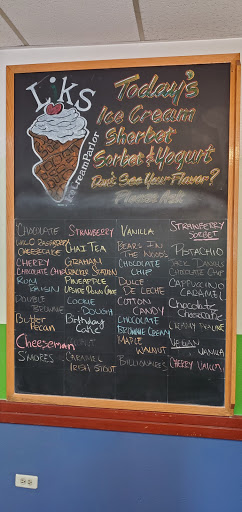 Liks
Ice Cream Parlor
Today's
Ice Cream
Sherbet
Sorbet & Yogurt
Don't See Your Flavor?
Please Ask
Chocolate
Wild Raspberry
Cheesecake
Cherry
Chocolate Chip
Rum
Raisin
Double
Brownie
Butter
Pecan
Cheeseman
S'mores
Strawberry
Chai Tea
Graham
Cracker
Pineapple
Upside Down Cake
Cookie
Dough
Birthday
Cake
Caramel
Irish Stout
Vanilla
Bear In
The Woods
Chocolate
Chip
Dulce
De Leche
Cotton
Candy
Chocolate
Brownie Cream
Maple
Walnut
Billionaires
Strawberry
Sorbet
Pistachio
Chocolate Chip
Cappuccino
Caramel
Chocolate
Creamy Praline
Vegan
Vanilla
Cherry Vanilla